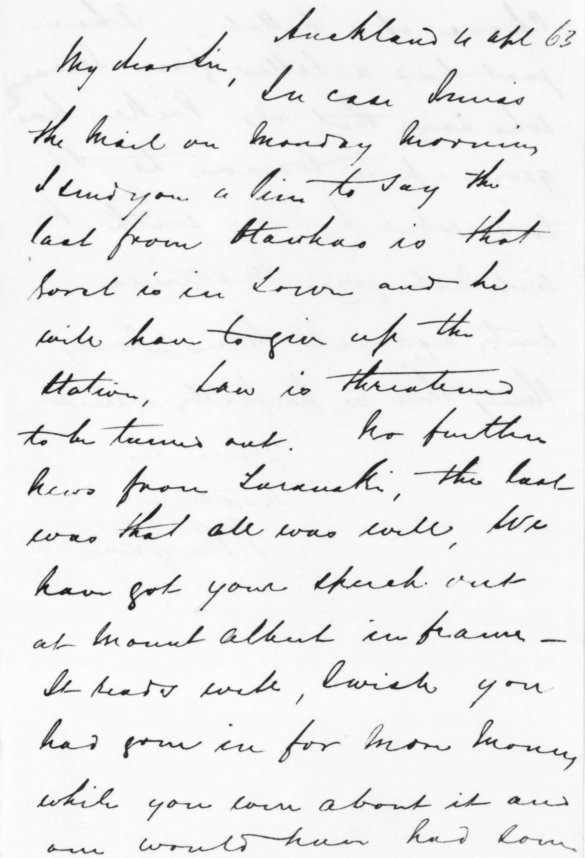 Auckland 4 Apl 63
My dear Sir, In case I miss
the Mail on Monday Morning
I send you a line to say the
last from Otawhao is that
Gorst is in Town and he
will have to give up the
Station, Law is threatened
to be turned out. No further
News from Taranaki, the last
was that all was well, We
have got your speech out
at Mount Albert in frame –
It reads well, I wish you
had gone in for More Money
while you were about it and
one would have had some